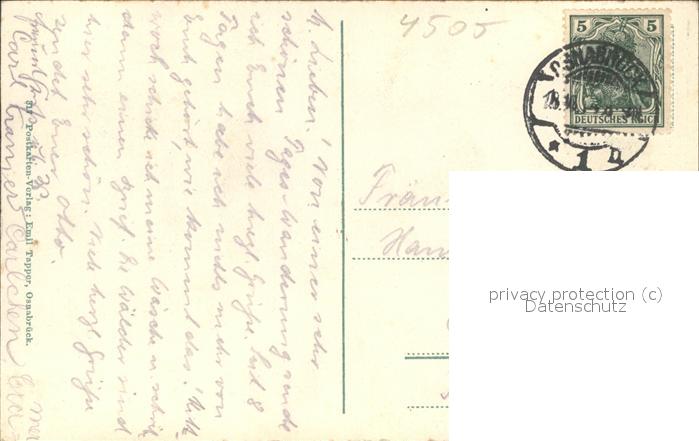 4505
5 5
DEUTSCHES REICH
OSNABRÜCK
* 1 n
M. Lieben! Von einer sehr
schönen Tages-Wanderung sende
ich Euch viele herzl. Grüße. Seit 8
Tagen habe ich nichts mehr von
Euch gehört, wie kommt das? Mittwoch
schicke ich meine Wäsche u. schreibe
dann einen Brief. Die Wälder sind
hier sehr schön. Viele herzl. Grüße
sendet Euer Otto.
Carl Cramer
Postkarten-Verlag: Emil Tapper, Osnabrück.
Fräu
Han
privacy protection (c)
Datenschutz